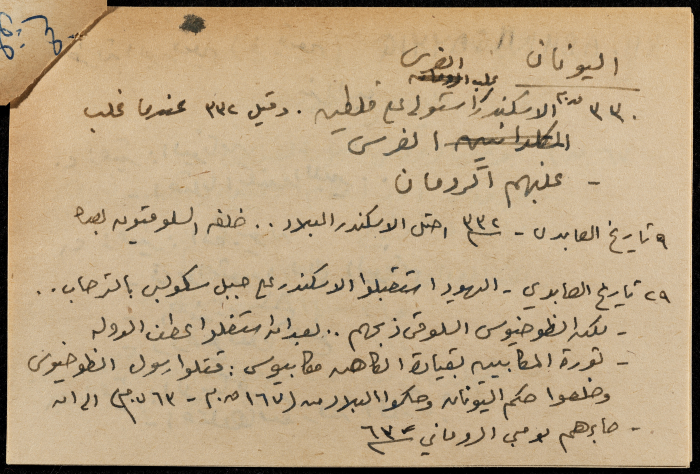 اليونان
الفرس
غلب الرومان
٣٣٠ ق.م الاسكندر استولى على فلسطين . وقيل ٣٣٢ عندما غلب
المكدانيين الفرس
- غلبهم الرومان
٩ تاريخ العابدي - ٣٣٢ احتل الاسكندر البلاد .. خلفه السلوقيون بعده
٢٩ تاريخ العابدي - اليهود استقبلوا الاسكندر على جبل سكوبس بالترحاب ..
- لكن انطوخيوس السلوقي ذبحهم .. بعد ان استغلوا عطف الدولة
- ثورة المكابيين بقيادة الكاهن مكابيوس : فقتلوا رسول انطوخيوس
وخلعوا حكم اليونان وحكموا البلاد من (١٦٧ ق.م - ٦٣ ق.م) الى ان
- حاربهم بومبي الروماني ٦٣